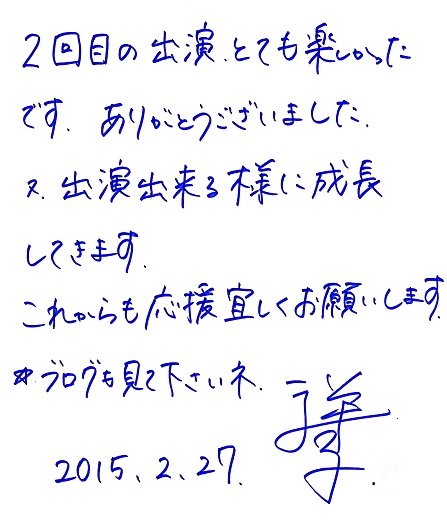 2回目の出演、とても楽しかった
です。ありがとうございました。
又、出演出来る様に成長
してきます。
これからも応援宜しくお願いします。
☆ブログも見て下さいネ。
2015.2.27.